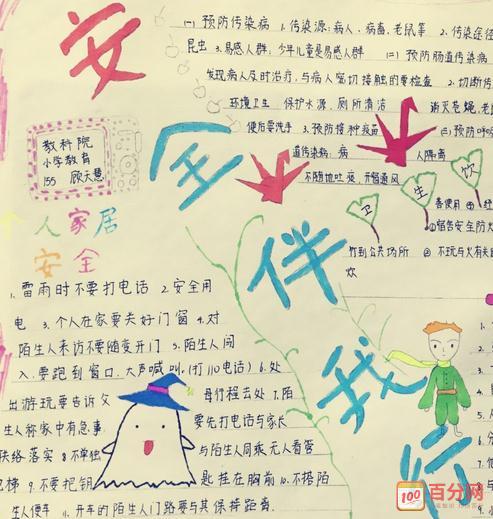 安全伴我行
(一)预防传染病 1.传染源:病人、病毒、老鼠等 2.传染途径
昆虫 3.易感人群:少年儿童是易感人群 (二)预防肠道传染病
发现病人及时治疗,与病人密切接触的要检查 2.切断传
环境卫生 保护水源、厕所清洁 消灭苍蝇、老
便后要洗手 3.预防接种疫苗 (三)预防呼
道传染病:病 人隔离
不随地吐痰,开窗通风
卫
生
饮
教科院
小学教育
155 顾天慧
个人家居
安全
1.雷雨时不要打电话 2.安全用
电 3.个人在家要关好门窗 4.对
陌生人来访不要随变开门 5.陌生人闯
入,要跑到窗口,大声喊叫(打110电话) 6.外
出游玩要告诉父母行程去处 7.陌
生人称家中有急事要先打电话与家长
联络落实 8.不单独与陌生人同乘无人看管
电梯 9.不要把钥匙挂在胸前 10.不搭陌
生人便车 11.开车的陌生人问路要与其保持距离.
竹到公共场所
②不玩与火有关
100 百分网